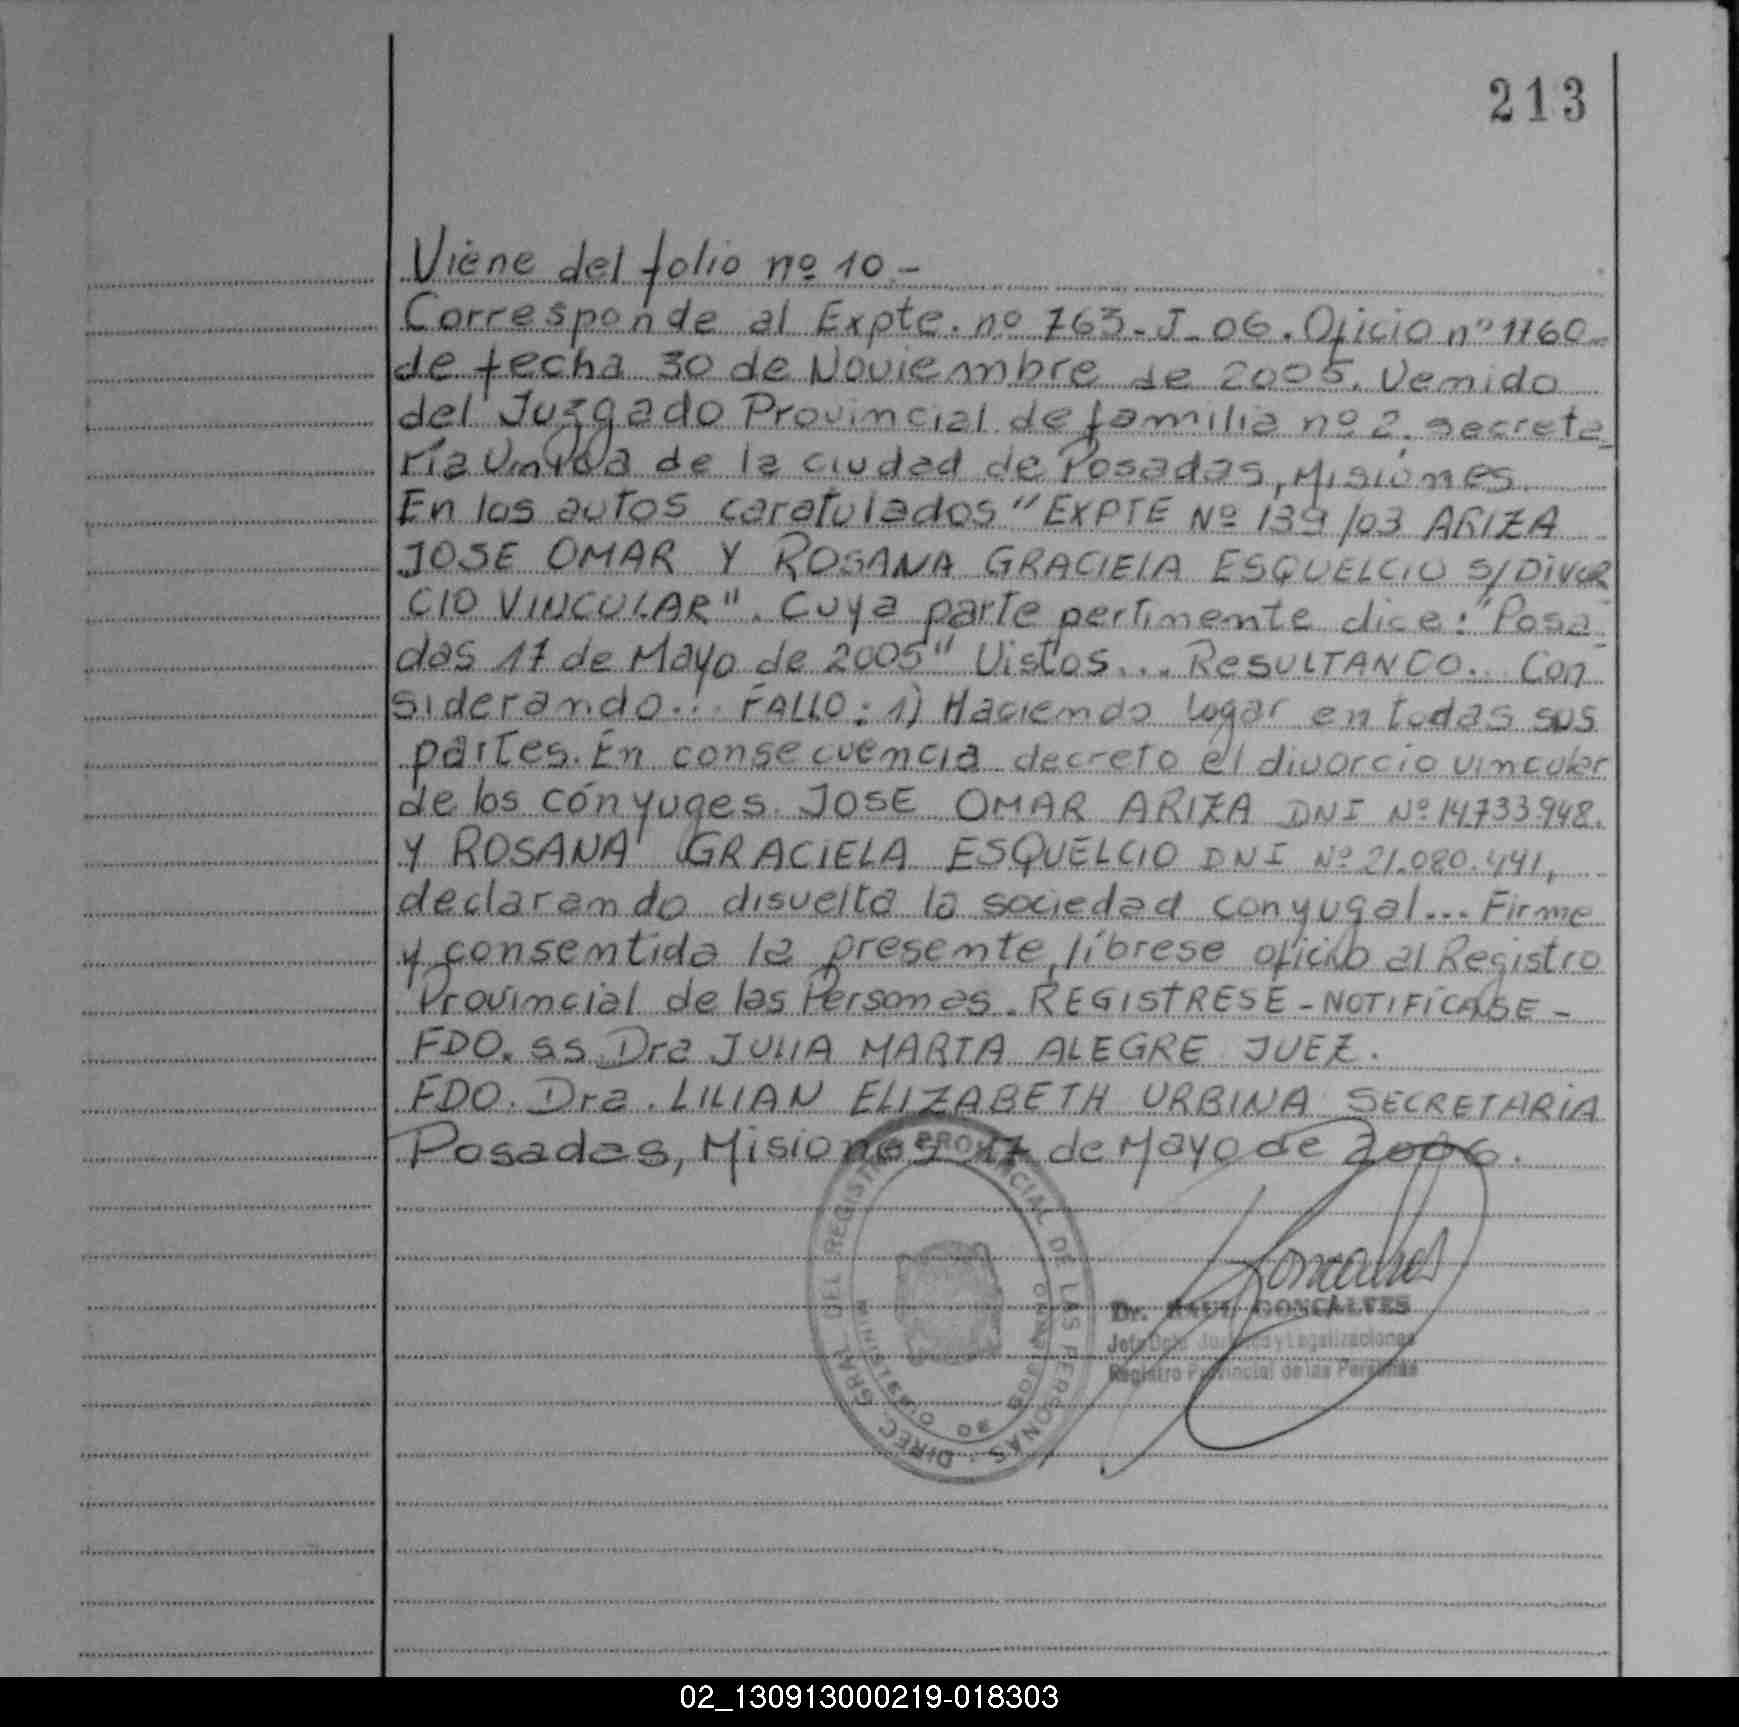 213
Viene del folio nº 10.-
Corresponde al Expte. nº 763-J-06. Oficio nº 1160-
de fecha 30 de Noviembre de 2005. Venido
del Juzgado Provincial de familia nº 2. secreta
ría Unica de la ciudad de Posadas, Misiones.
En los autos caratulados "EXPTE Nº 139/03 ARIZA
JOSE OMAR Y ROSANA GRACIELA ESQUELCIO S/DIVOR
CIO VINCULAR". Cuya parte pertinente dice: "Posa
das 17 de Mayo de 2005" Vistos... RESULTANDO... Con
siderando... FALLO: 1) Haciendo lugar en todas sus
partes. En consecuencia decreto el divorcio vincular
de los cónyuges. JOSE OMAR ARIZA DNI Nº 14.733.948.
Y ROSANA GRACIELA ESQUELCIO DNI Nº 21.080.441,
declarando disuelta la sociedad conyugal... Firme
y consentida la presente, líbrese oficio al Registro
Provincial de las Personas. REGISTRESE - NOTIFÍCASE -
FDO. SS. Dra JULIA MARTA ALEGRE JUEZ.
FDO. Dra. LILIAN ELIZABETH URBINA SECRETARIA
Posadas, Misiones 17 de Mayo de 2006.
DIREC. GRAL. DEL REGISTRO PROVINCIAL DE LAS PERSONAS
MINISTERIO DE GOBIERNO
Dr. RAUL GONCALVES
Jefe Dpto. y Legalizaciones
Registro Provincial de las Personas
02_130913000219-018303